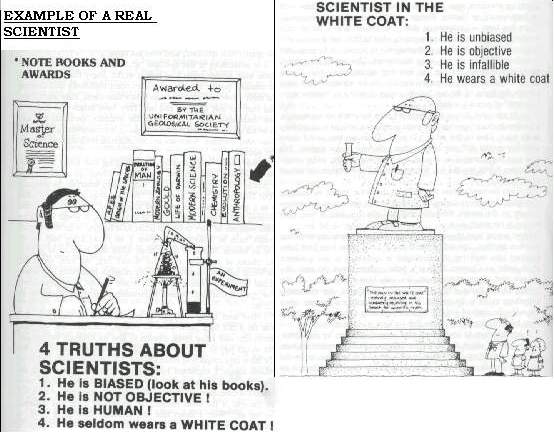 EXAMPLE OF A REAL
SCIENTIST
* NOTE BOOKS AND
AWARDS
Master
of
Science
Awarded to
BY THE
UNIFORMITARIAN
GEOLOGICAL SOCIETY
EVOLUTION OF
MAN
GOULD
LIFE OF DARWIN
MODERN SCIENCE
CHEMISTRY
EVOLUTION
ANTHROPOLOGY
AN
EXPERIMENT
4 TRUTHS ABOUT
SCIENTISTS:
1. He is BIASED (look at his books).
2. He is NOT OBJECTIVE !
3. He is HUMAN !
4. He seldom wears a WHITE COAT !
SCIENTIST IN THE
WHITE COAT:
1. He is unbiased
2. He is objective
3. He is infallible
4. He wears a white coat
"THE MAN IN THE WHITE COAT"